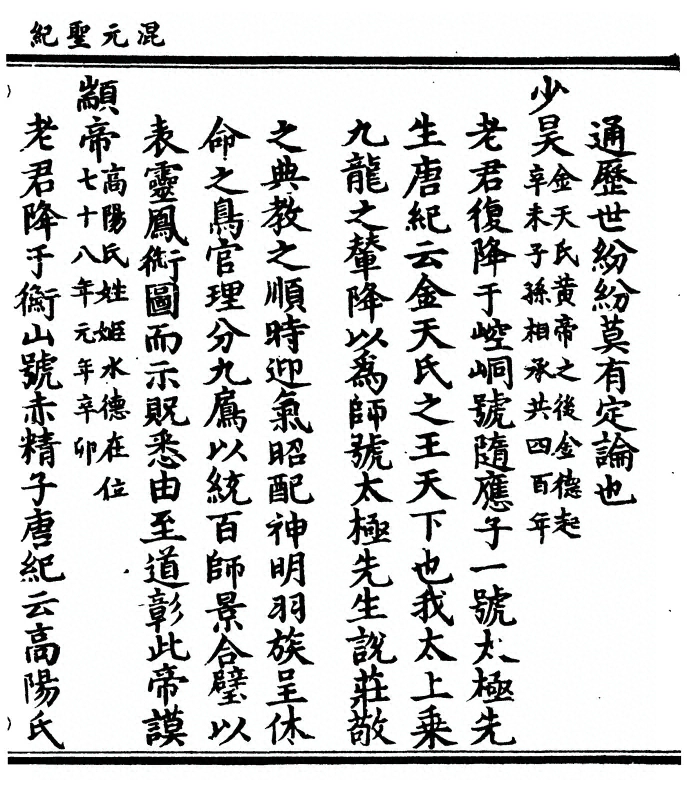 混元聖紀
通歷世紛紛莫有定論也
少昊金天氏黄帝之後金德起
辛未子孫相承共四百年
老君復降于崆峒號隨應子一號太極先
生唐紀云金天氏之王天下也我太上乗
九龍之輦降以為師號太極先生說莊敬
之典教之順時迎氣昭配神明羽族呈休
命之鳥官理分九鳸以統百師景合璧以
表靈鳳銜圖而示貺悉由至道彰此帝謨
顓帝高陽氏姓姬水德在位
七十八年元年辛卯
老君降于衡山號赤精子唐紀云高陽氏